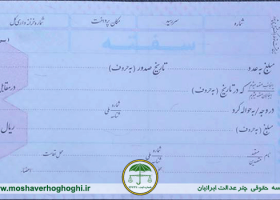 شماره سررسید مکان پرداخت شماره خزانه داری کل
سفته
مبلغ به عدد تاریخ صدور (به حروف)
که در تاریخ (به حروف) در مقابل
در وجه / به حواله کرد شماره ملی
مبلغ (به حروف) ریال
شماره ملی
محل اقامت
امضاء
www.moshaverhoghoghi.ir گروه حقوقی چتر عدالت ایرانیان